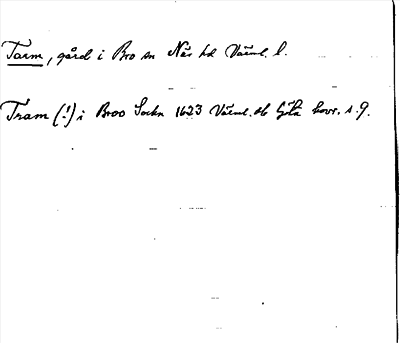 Tarm, gård i Bro sn Näs hd Värml. l.
Tram (!) i Broo Sockn 1623 Värml. hb Göta hovr. s. 9.